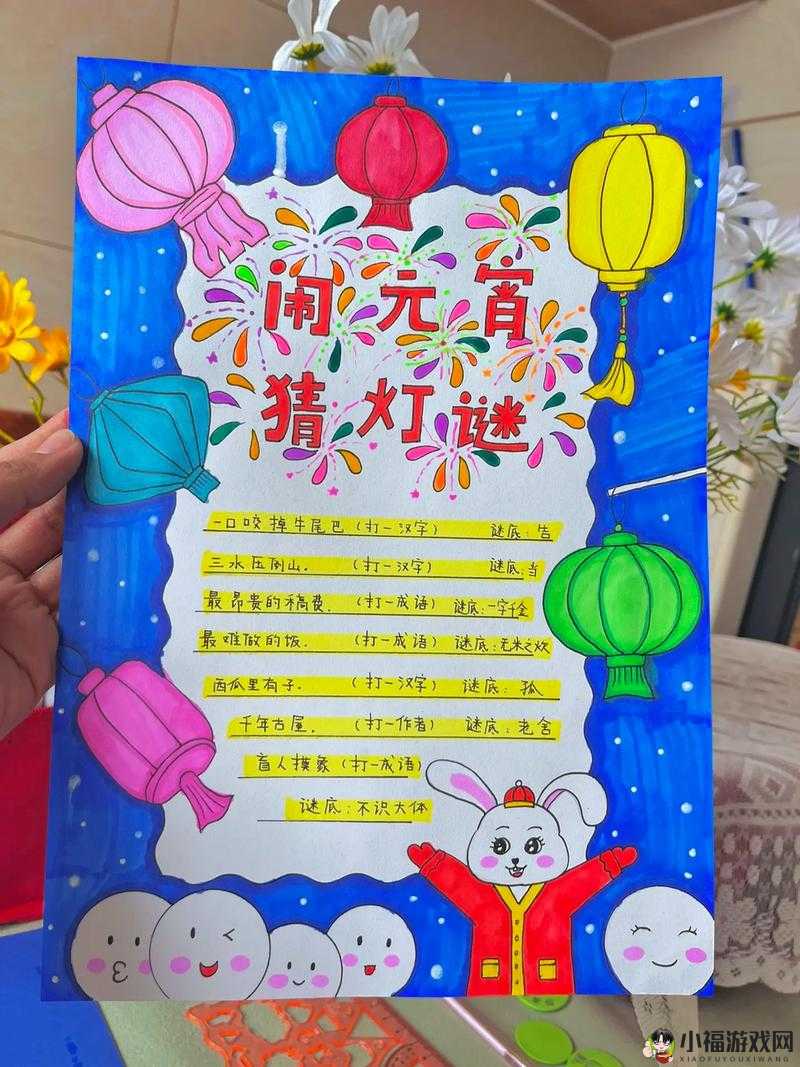 闹元宵
猜灯谜
一口咬掉牛尾巴（打一汉字） 谜底：告
三水压倒山． （打一汉字） 谜底：当
最昂贵的稿费． （打一成语） 谜底：一字千金
最难做的饭． （打一成语） 谜底：无米之炊
西瓜里有子． （打一汉字） 谜底：孤
千年古屋． （打一作者） 谜底：老舍
盲人摸象（打一成语）
谜底：不识大体
小福游戏网
XIAOFUYOUXIWANG